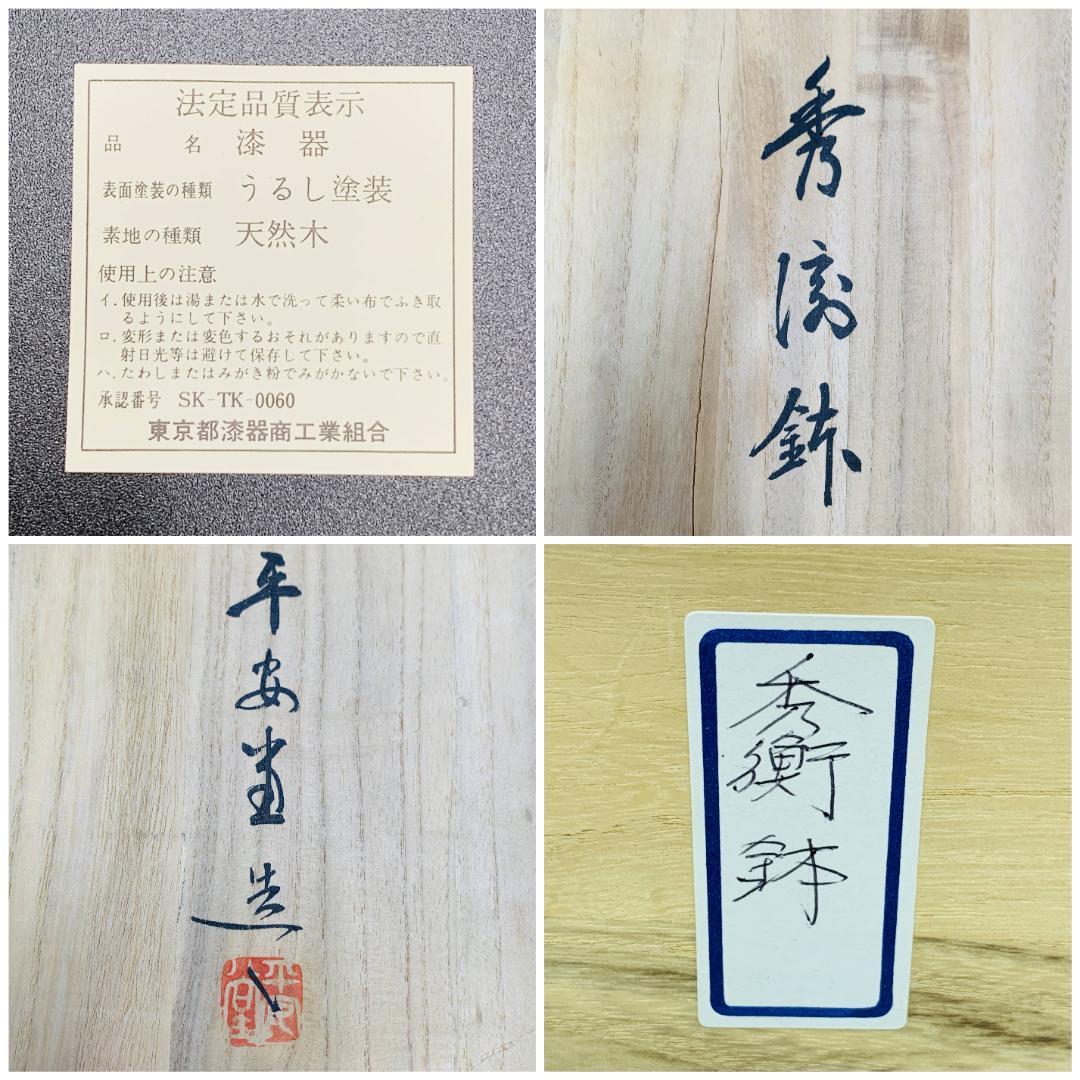 法定品質表示
品 名 漆 器
表面塗装の種類 うるし塗装
素地の種類 天然木
使用上の注意
イ.使用後は湯または水で洗って柔い布でふき取
るようにして下さい。
ロ.変形または変色するおそれがありますので直
射日光等は避けて保存して下さい。
ハ.たわしまたはみがき粉でみがかないで下さい。
承認番号 SK-TK-0060
東京都漆器商工業組合
秀衡鉢
平安堂造
秀衡鉢